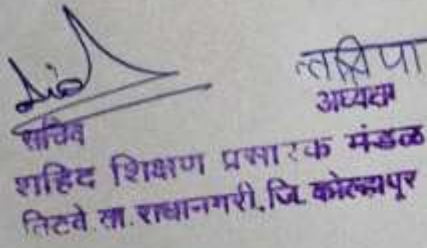 सचिव अध्यक्ष
शहिद शिक्षण प्रसारक मंडळ
तिटवे ता. राधानगरी, जि. कोल्हापूर